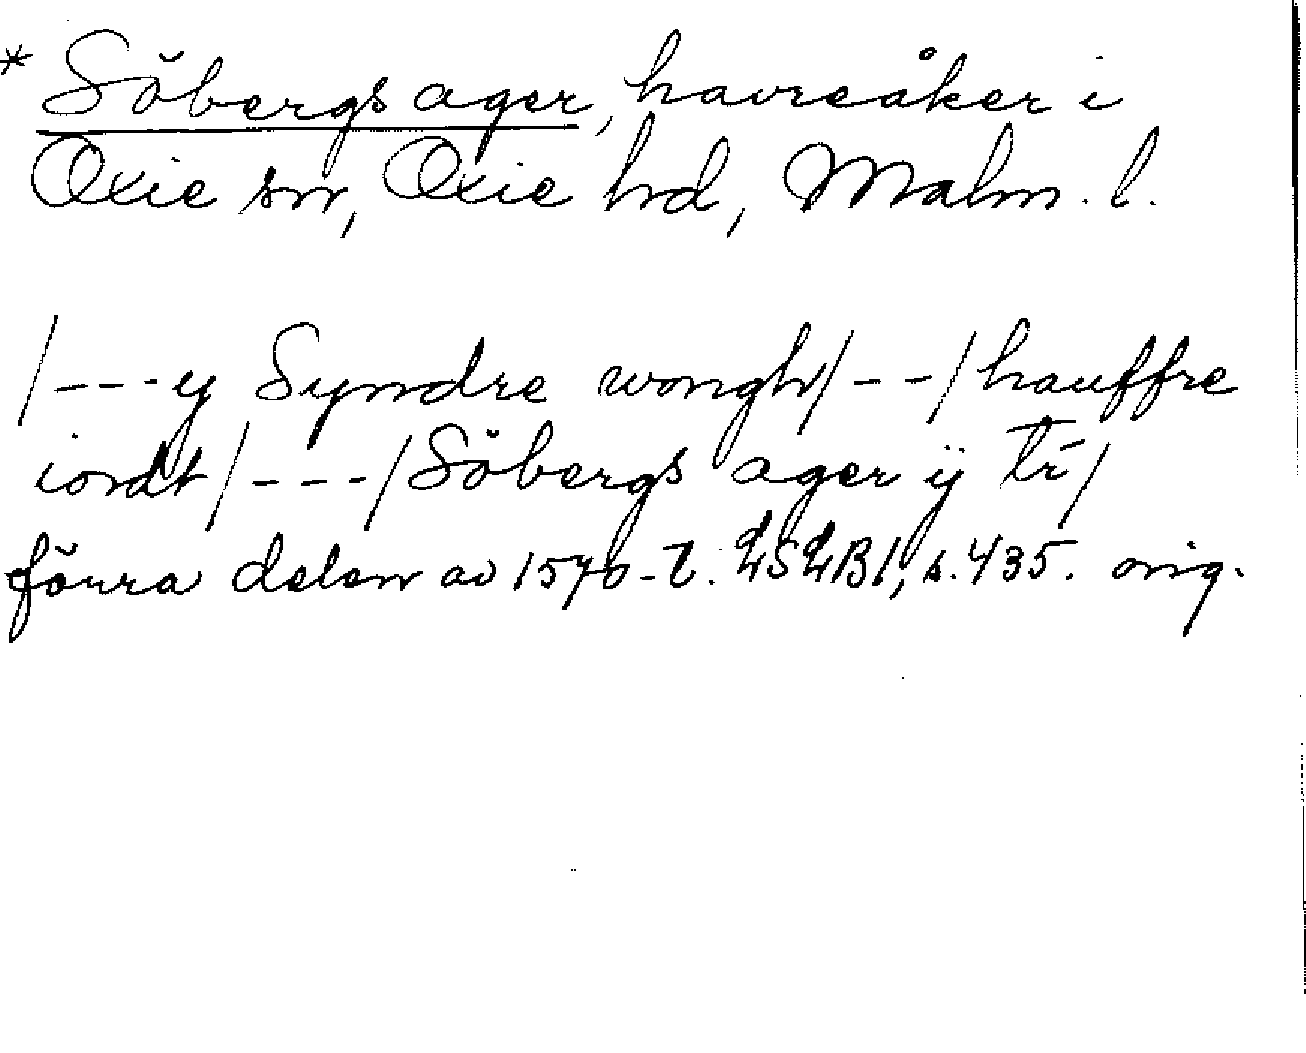 * Söbergs ager, havreåker i
Oxie sn, Oxie hd, Malm. l.
/---y Syndre wongh/--/hauffre
iordt/---/Söbergs ager ij
förra delen av 1570-t. LSLB1, s.435. orig.